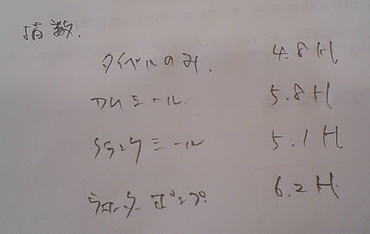 指数.
タイベルのみ. 4.8H
TMシール 5.8H
シランクシール 5.1H
ウォーターポンプ 6.2H